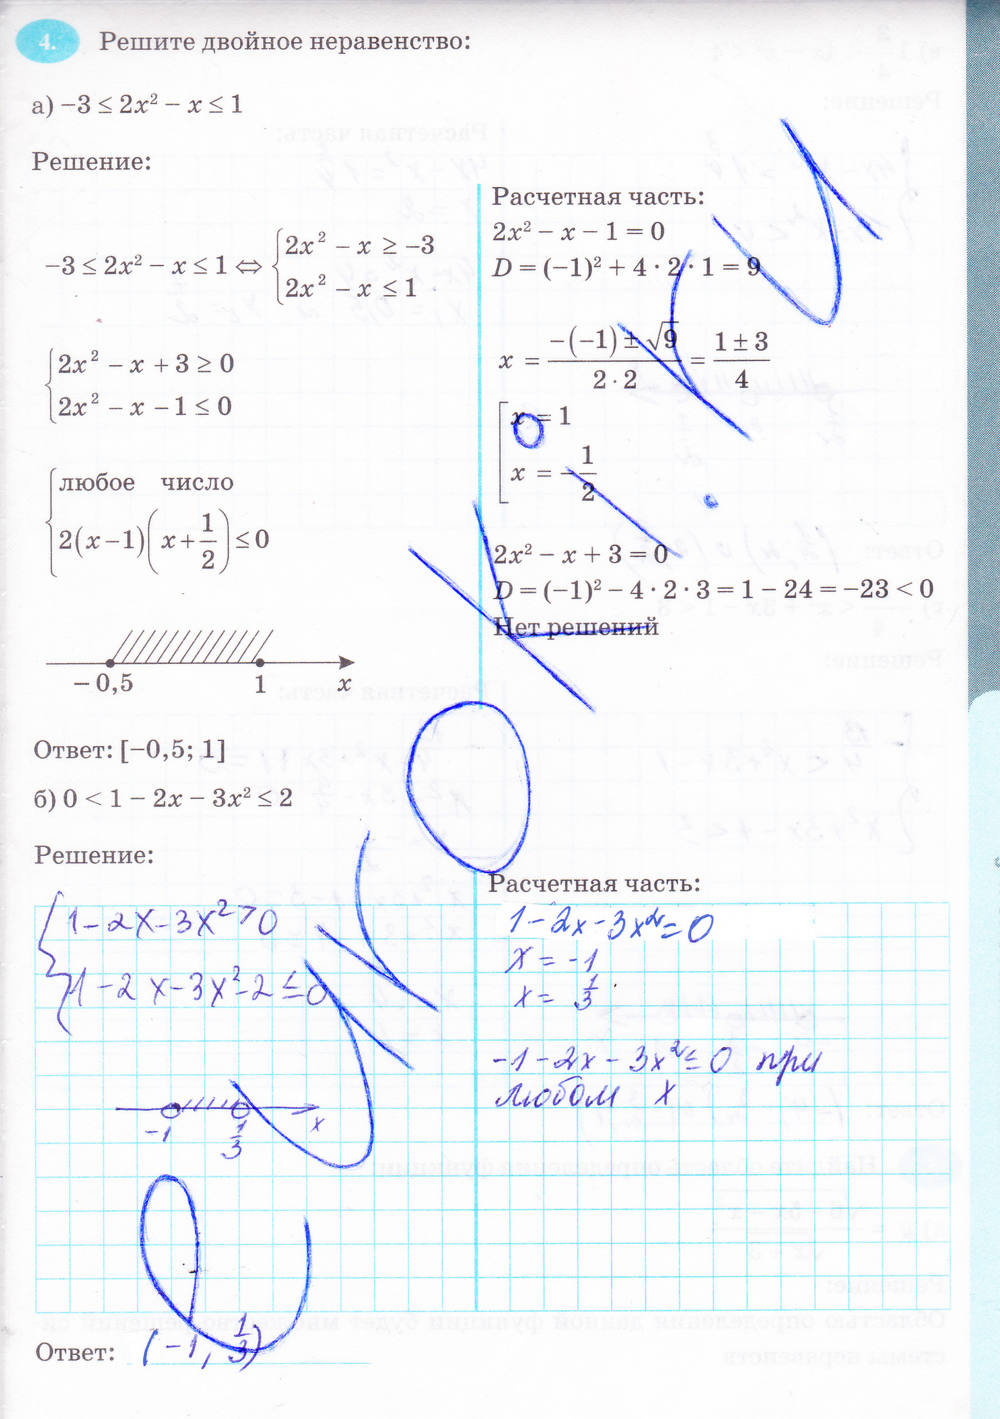 4. Решите двойное неравенство:
а) −3 ≤ 2x² − x ≤ 1
Решение:
−3 ≤ 2x² − x ≤ 1 ⇔ { 2x² − x ≥ −3
2x² − x ≤ 1
{ 2x² − x + 3 ≥ 0
2x² − x − 1 ≤ 0
{ любое число
2(x−1)(x+1/2) ≤ 0
−0,5 1 x
Ответ: [−0,5; 1]
Расчетная часть:
2x² − x − 1 = 0
D = (−1)² + 4 · 2 · 1 = 9
x = (−(−1) ± √9)/(2 · 2) = (1 ± 3)/4
[ x = 1
x = −1/2
2x² − x + 3 = 0
D = (−1)² − 4 · 2 · 3 = 1 − 24 = −23 < 0
Нет решений
б) 0 < 1 − 2x − 3x² ≤ 2
Решение:
{ 1 − 2x − 3x² > 0
1 − 2x − 3x² − 2 ≤ 0
−1 1/3 x
Расчетная часть:
1 − 2x − 3x² = 0
x = −1
x = 1/3
−1 − 2x − 3x² ≤ 0 при
любом x
Ответ: (−1, 1/3)
eurOKi.ru